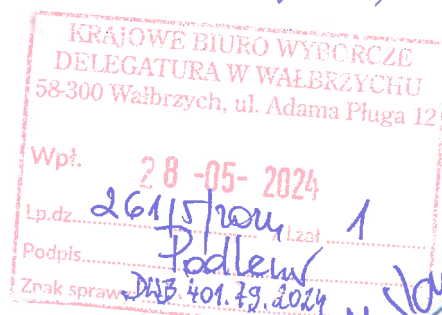 KRAJOWE BIURO WYBORCZE
DELEGATURA W WAŁBRZYCHU
58-300 Wałbrzych, ul. Adama Pługa 12
Wpł. 28 -05- 2024
Lp.dz. 261/5/2024 I.zał 1
Podpis
Znak sprawy DWB 401.79.2024